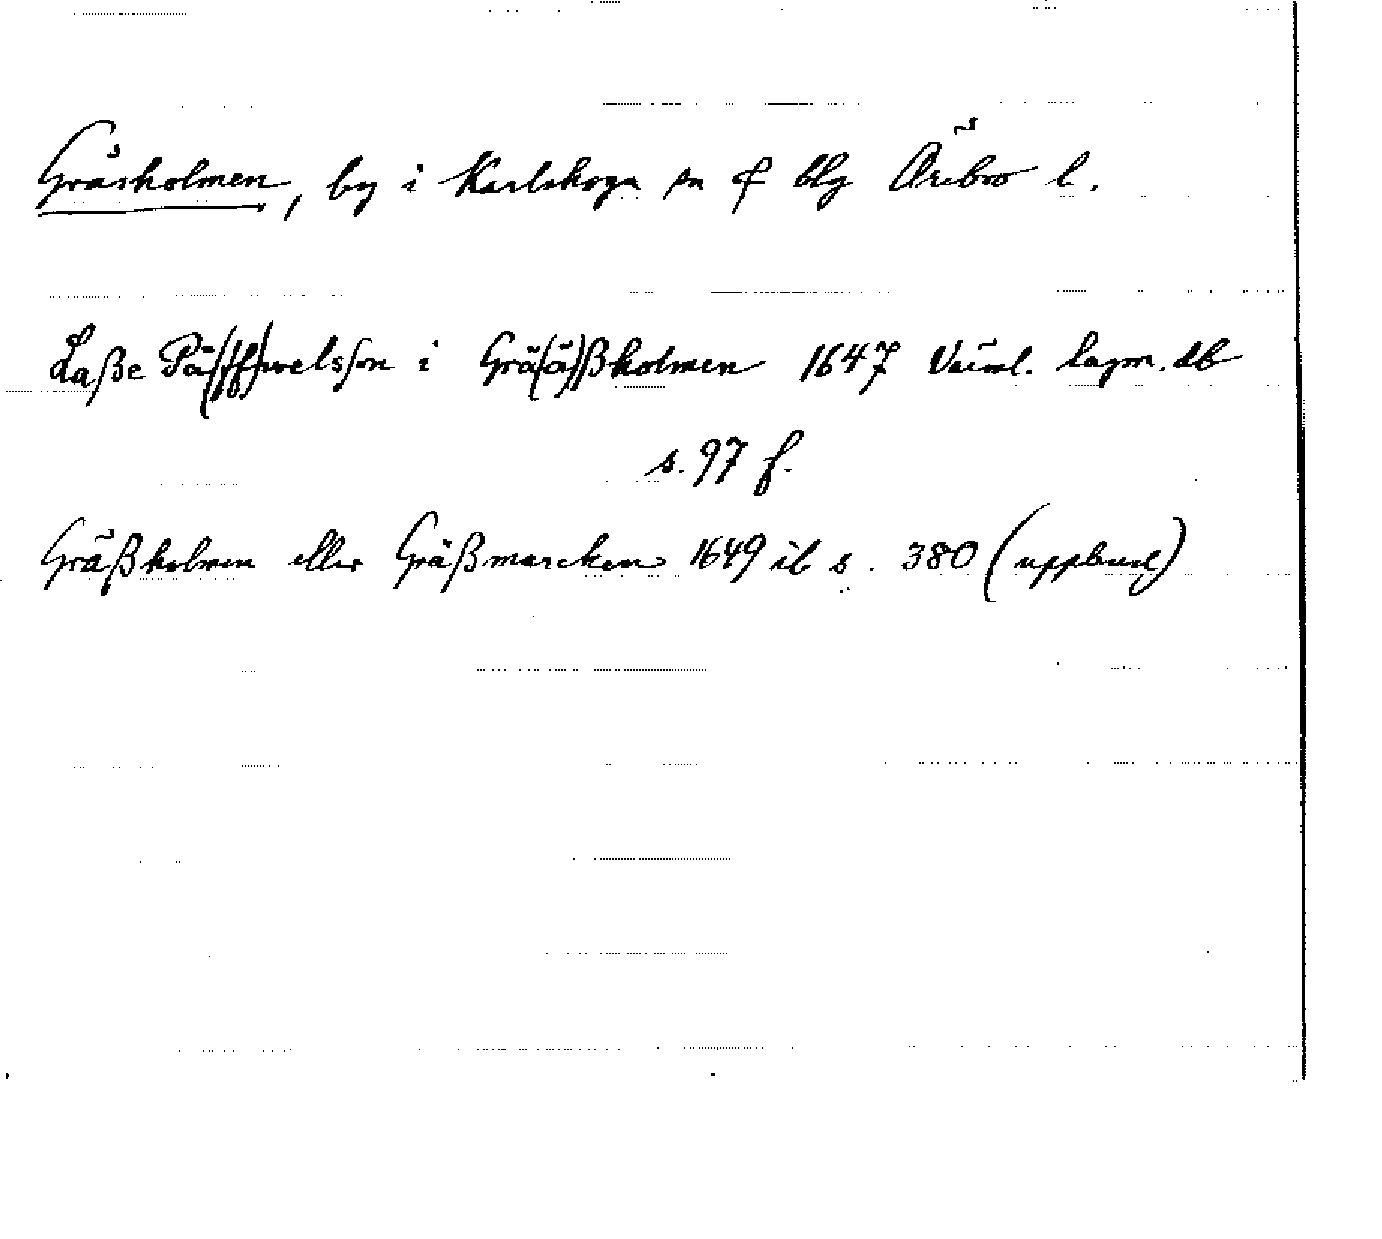 Gräsholmen, by i Karlskoga sn o blg Örebro l.
Laße Pä(ff)welsson i Grä(ä)ßholmen 1647 Värml. lagm. db
s. 97 f.
Gräßholmen eller Gräßmarcken 1649 ib s. 380 (uppbud)